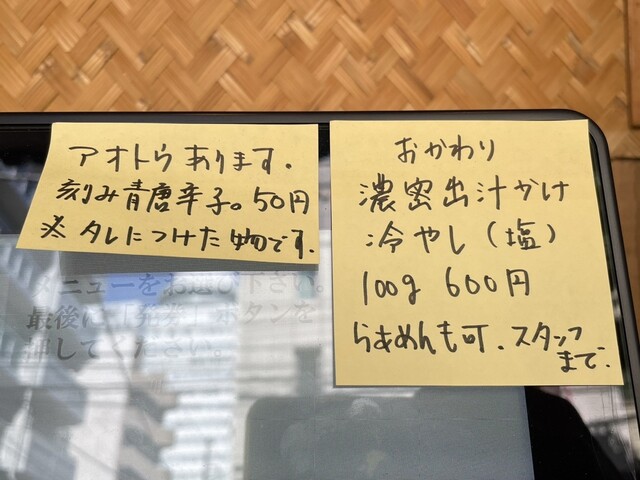 アオトウあります.
刻み青唐辛子。50円
※タレにつけた物です.
おかわり
濃密出汁かけ
冷やし(塩)
100g 600円
らぁめんも可.スタッフ
まで.
メニューをお選び下さい。
最後に「発券」ボタンを
押してください。